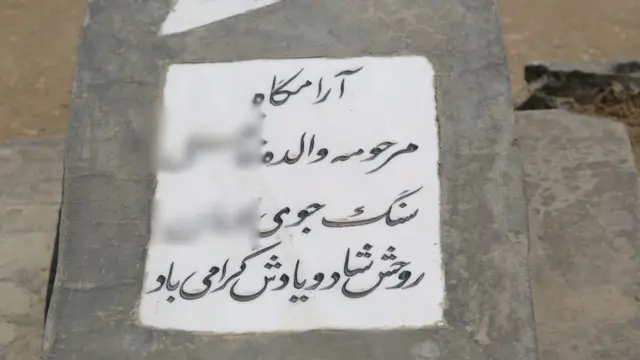 آرامگاه
مرحومه والده
سنگ جوی
روحش شاد و یادش گرامی باد